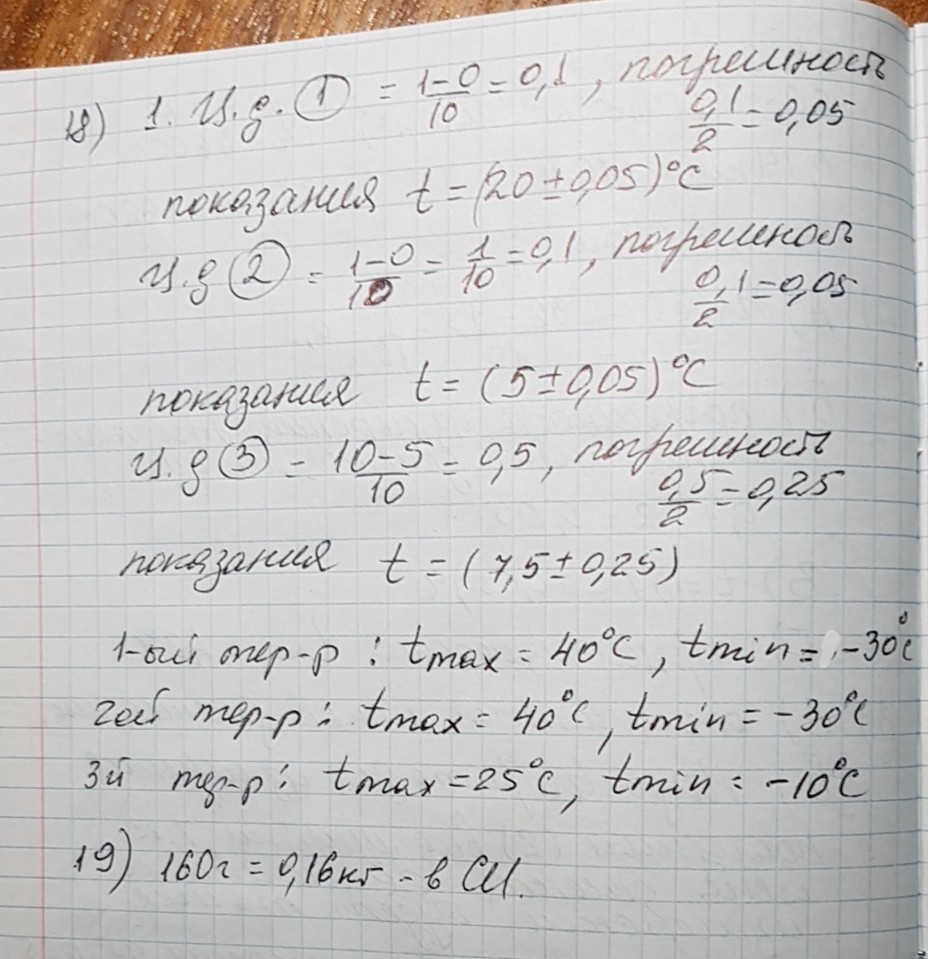 18) 1. Ц.д. ① = 1-0/10 = 0,1, погрешность 0,1/2 = 0,05
показания t = (20 ± 0,05)°C
Ц.д ② = 1-0/10 = 1/10 = 0,1, погрешность 0,1/2 = 0,05
показания t = (5 ± 0,05)°C
Ц.д ③ = 10-5/10 = 0,5, погрешность 0,5/2 = 0,25
показания t = (7,5 ± 0,25)
1-ый тер-р : tmax = 40°C, tmin = -30°C
2ой тер-р : tmax = 40°C, tmin = -30°C
3й тер-р : tmax = 25°C, tmin = -10°C
19) 160г = 0,16кг - в СИ.